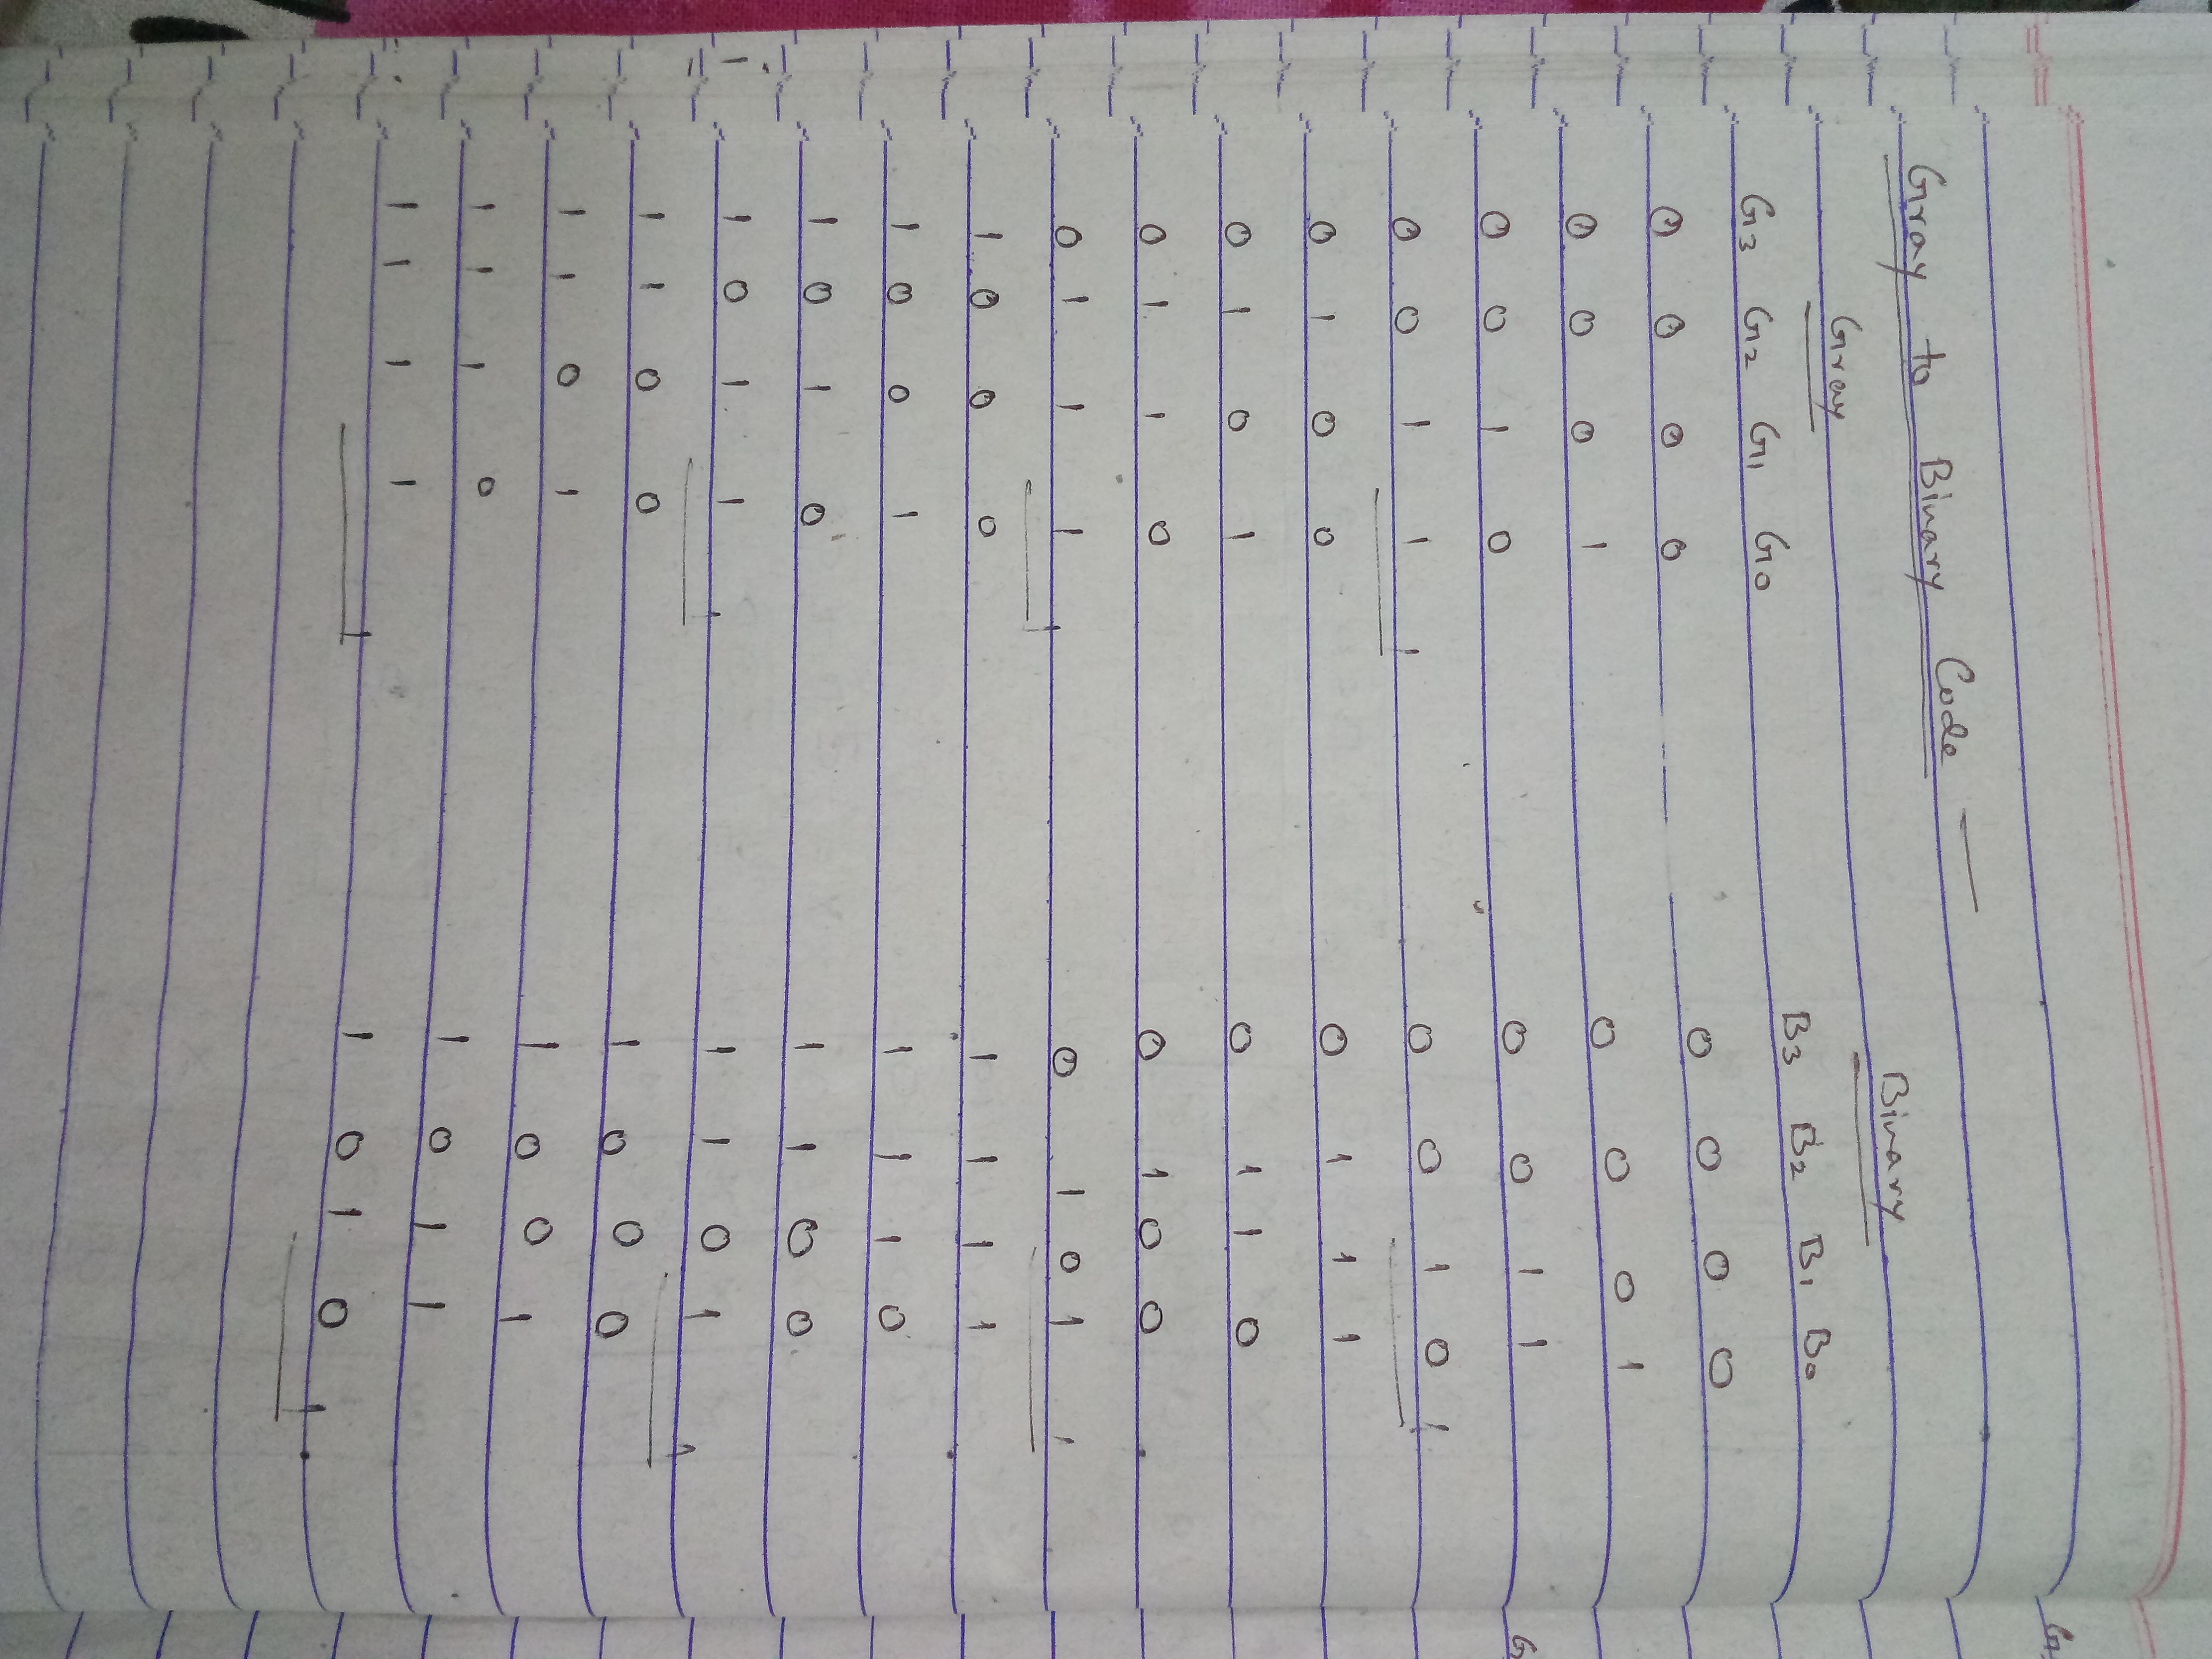 Gray to Binary Code —
Gray Binary
G3 G2 G1 G0 B3 B2 B1 B0
0 0 0 0 0 0 0 0
0 0 0 1 0 0 0 1
0 0 1 0 0 0 1 1
0 0 1 1 0 0 1 0
0 1 0 0 0 1 1 1
0 1 0 1 0 1 1 0
0 1 1 0 0 1 0 0
0 1 1 1 0 1 0 1
1 0 0 0 1 1 1 1
1 0 0 1 1 1 1 0
1 0 1 0 1 1 0 0
1 0 1 1 1 1 0 1
1 1 0 0 1 0 0 0
1 1 0 1 1 0 0 1
1 1 1 0 1 0 1 1
1 1 1 1 1 0 1 0